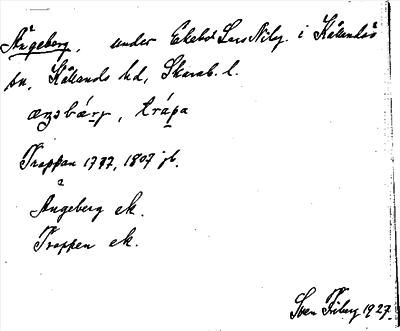 Ängeberg, under Ekebo Lars Nilsg. i Kållands
sn, Kållands hd, Skarab. l.
ængbárj, trápa
Trappan 1787, 1807 jb.
Ängeberg ek.
Trappen ek.
Sven Friberg 1927.